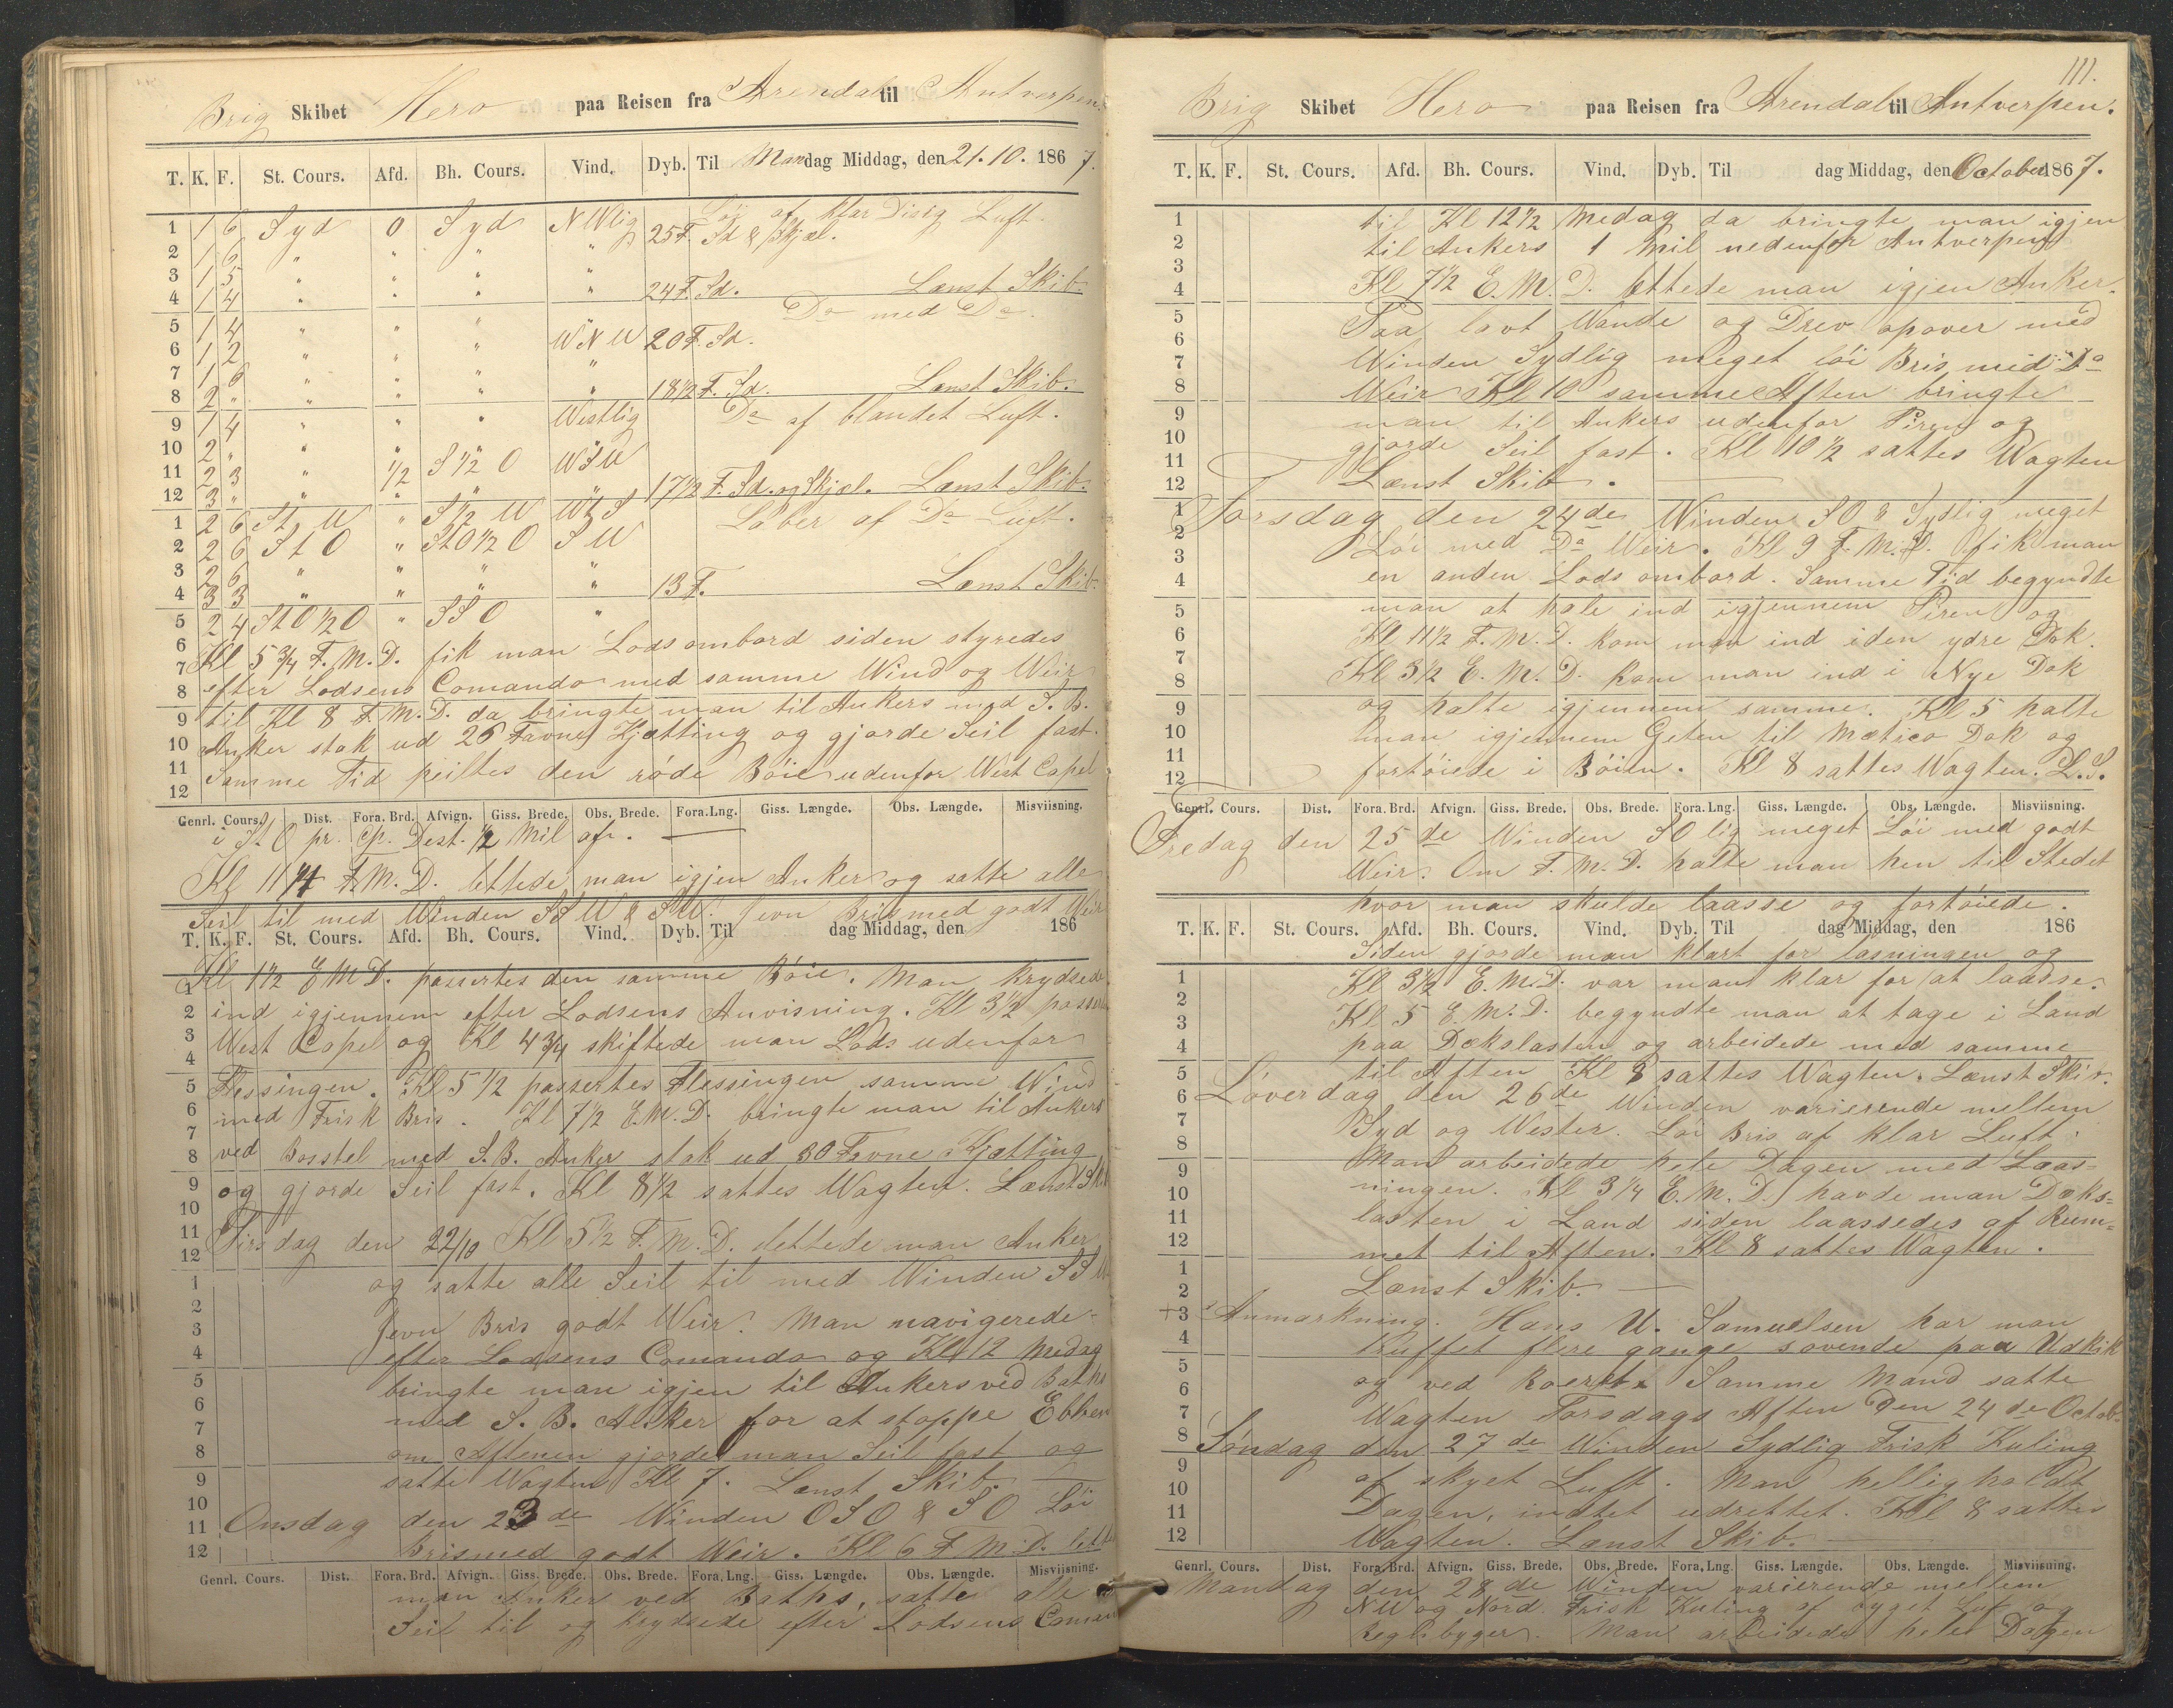 Brig Skibet Hero paa Reisen fra Arendal til Antverpen.
T. K. F. St. Cours. Afd. Bh. Cours. Vind. Dyb. Til Mandag Middag, den 21. 10. 1867.
1 1 6 Syd 0 Syd NWlig 25 F. Sd & Skjæl. Löi af klar Disig Luft.
2 1 6 " " " "
3 1 5 " " " "
4 1 4 " " " " 24 F. Sd. Lænst Skib.
5 1 4 " " " Do med Do.
6 1 2 " " " WNW 20 F. Sd.
7 1 6 " " " "
8 2 " " " " " 18 1/2 F. Sd. Lænst Skib.
9 1 4 " " " Westlig Do af blandet Luft.
10 2 " " " "
11 2 3 " 1/2 S 1/2 O WSW
12 3 " " " " " 17 1/2 F. Sd. og Skjæl. Lænst Skib.
1 2 6 St W " S 1/2 W WtS Laber af Do Luft.
2 2 6 St O " StO 1/2 O SW
3 2 6 " " " "
4 3 3 " " " " 13 F. Lænst Skib
5 2 4 StO 1/2 O " SSO "
6 Kl 5 3/4 F. M. D. fik man Lods ombord siden styredes
7
8 efter Lodsens Comando med samme Wind og Weir
9 til Kl 8 F. M. D. da bringte man til Ankers med S. B.
10 Anker stak ud 26 Favne Kjætting og gjorde Seil fast.
11 Samme Tid peiltes den røde Böie udenfor West Capel
12
Genrl. Cours. Dist. Fora. Brd. Afvign. Giss. Brede. Obs. Brede. Fora. Lng. Giss. Længde. Obs. Længde. Misviisning.
i St O pr. Cp. Dest. 1/2 Mil af.
Kl 11 F. M. D. lettede man igjen Anker og satte alle
Seil til med Winden SSW & SW. Jevn Bris med godt Weir
T. K. F. St. Cours. Afd. Bh. Cours. Vind. Dyb. Til dag Middag, den 186
Kl 1 1/2 E M D. passertes den samme Böie. Man krydsede
1
2 ind igjennem efter Lodsens Anvisning. Kl 3 1/2 passert
3 West Capel og Kl 4 3/4 skiftede man Lods udenfor
4
5 Flessingen. Kl 5 1/2 passertes Flessingen samme Wind
6 med Frisk Bris. Kl 7 1/2 E. M. D. bringte man til Ankers
7
8 ved Bosstel med S. B. Anker stak ud 30 Favne Kjætting
9 og gjorde Seil fast. Kl 8 1/2 sattes Wagten. Lænst Skib
10
11 Tirsdag den 22/10 Kl 5 1/2 F. M. D. lettede man Anker
12
1 og satte alle Seil til med Winden SSW
2
3 Jevn Bris godt Weir. Man navigerede
4 efter Lodsens Comando og Kl 12 Medag
5 bringte man igjen til Ankers ved Baths
6
7 med S. B. Anker for at stoppe Ebben
8 om Aftenen gjorde man Seil fast og
9 satte Wagten Kl 7. Lænst Skib.
10
11 Onsdag den 23de Winden OSO & SO Löi
12 Bris med godt Weir. Kl 6 F. M. D. let
Genrl. Cours. Dist. Fora. Brd. Afvign. Giss. Brede. Obs. Brede. Fora. Lng. Giss. Længde. Obs. Længde. Misviisning.
man Anker ved Baths, satte alle
Seil til og krydsede efter Lodsens Coman
111.
Brig Skibet Hero paa Reisen fra Arendal til Antverpen.
T. K. F. St. Cours. Afd. Bh. Cours. Vind. Dyb. Til dag Middag, den October 1867.
1 til Kl 12 1/2 Medag da bringte man igjen
2 til Ankers 1 Mil nedenfor Antverpen
3
4 Kl 7 1/2 E. M. D. lettede man igjen Anker.
5 Paa lavt Wande og Drev opover med
6
7 Winden Sydlig meget löi Bris med Da
8 Weir Kl 10 samme Aften bringte
9 man til Ankers udenfor Piren og
10 gjorde Seil fast. Kl 10 1/2 sattes Wagten
11
12 Lænst Skib.
1 Torsdag den 24de Winden SO & Sydlig meget
2 Löi med Da Weir. Kl 9 F. M. D. fik man
3
4 en anden Lods ombord. Samme Tid begyndte
5 man at hale ind igjennem Piren og
6 Kl 11 1/2 F. M. D. kom man ind iden ydre Dok.
7
8 Kl 3 1/2 E. M. D. kom man ind i Nye Dok
9 og halte igjennem samme. Kl 5 halte
10 man igjennem Geten til Mætico Dok og
11
12 fortöiede i Böien. Kl 8 sattes Wagten. L. S.
Genrl. Cours. Dist. Fora. Brd. Afvign. Giss. Brede. Obs. Brede. Fora. Lng. Giss. Længde. Obs. Længde. Misviisning.
Fredag den 25de Winden SOlig meget Löi med godt
Weir. Om F. M. D. halte man hen til Stedet
hvor man skulde laasse og fortöiede.
T. K. F. St. Cours. Afd. Bh. Cours. Vind. Dyb. Til dag Middag, den 186
Siden gjorde man klart for lasningen og
1 Kl 3 1/2 E. M. D. var man klar for at laasse.
2
3 Kl 5 E. M. D. begyndte man at tage i Land
4 paa Dækslasten og arbeidede med samme
5 til Aften Kl 8 sattes Wagten. Lænst Skib.
6 Löverdag den 26de Winden varierende mellem
7 Syd og Wester. Löi Bris af klar Luft.
8
9 Man arbeidede hele Dagen med Laas-
10 ningen. Kl 3 1/4 E. M. D. havde man Dæks-
11 lasten i Land siden laassedes af Rum-
12 met til Aften. Kl 8 sattes Wagten.
1
2 Lænst Skib.
3 + Anmærkning. Hans U. Samuelsen har man
4 truffet flere gange sovende paa Udkik
5
6 og ved Roeret. Samme Mand satte
7 Wagten Torsdags Aften Den 24de Octob.
8 Söndag den 27de Winden Sydlig Frisk Kuling
9
10 af skyet Luft. Man helligholdt
11 Dagen, intet udrettet. Kl 8 sattes
12 Wagten. Lænst Skib.
Genrl. Cours. Dist. Fora. Brd. Afvign. Giss. Brede. Obs. Brede. Fora. Lng. Giss. Længde. Obs. Længde. Misviisning.
Mandag den 28de Winden varierende mellem
NW og Nord Frisk Kuling af byget Luft og
Regnbyger. Man arbeidede hele Dagen